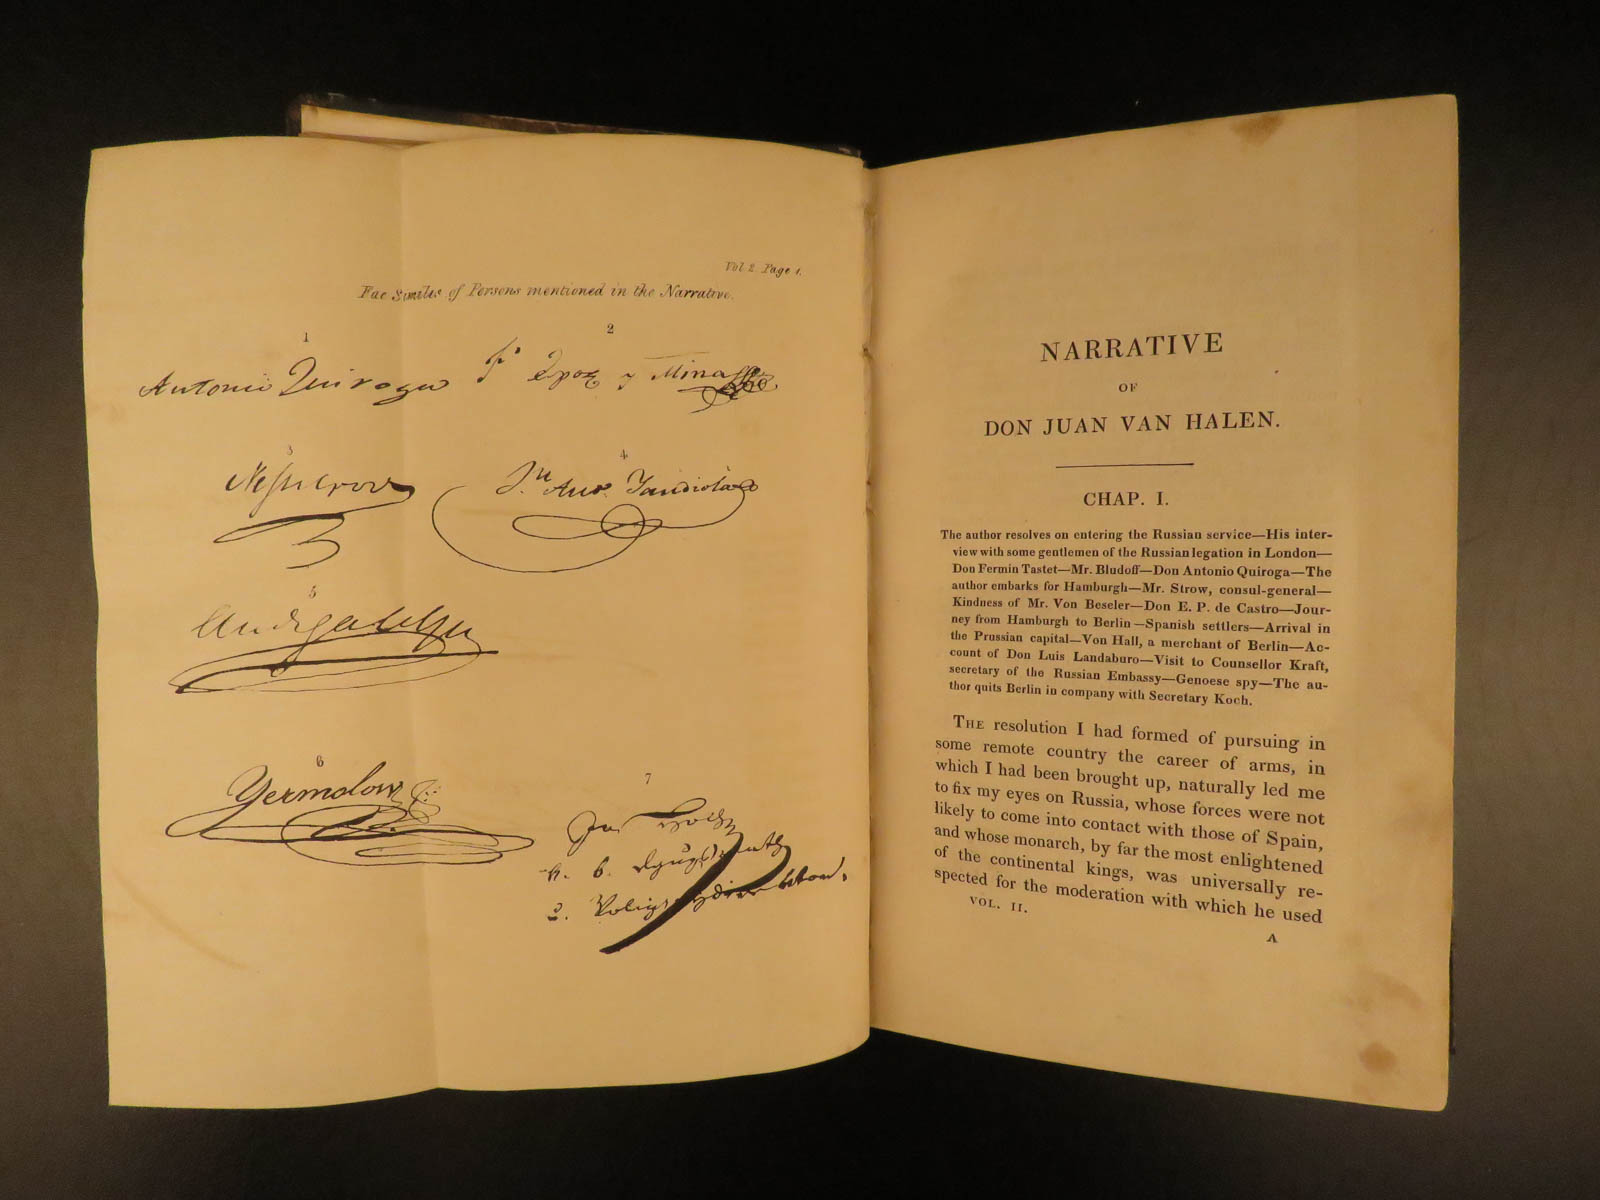 Vol 2. Page 1.
Fac Similes of Persons mentioned in the Narrative.
1
2
Antonio Quiroga
Espoz y Mina
3
4
Jn Anto. Yandiola
5
6
Yermolow
7
NARRATIVE
OF
DON JUAN VAN HALEN.
CHAP. I.
The author resolves on entering the Russian service—His inter-
view with some gentlemen of the Russian legation in London—
Don Fermin Tastet—Mr. Bludoff—Don Antonio Quiroga—The
author embarks for Hamburgh—Mr. Strow, consul-general—
Kindness of Mr. Von Beseler—Don E. P. de Castro—Jour-
ney from Hamburgh to Berlin—Spanish settlers—Arrival in
the Prussian capital—Von Hall, a merchant of Berlin—Ac-
count of Don Luis Landaburo—Visit to Counsellor Kraft,
secretary of the Russian Embassy—Genoese spy—The au-
thor quits Berlin in company with Secretary Koch.
THE resolution I had formed of pursuing in
some remote country the career of arms, in
which I had been brought up, naturally led me
to fix my eyes on Russia, whose forces were not
likely to come into contact with those of Spain,
and whose monarch, by far the most enlightened
of the continental kings, was universally re-
spected for the moderation with which he used
VOL. II.
A